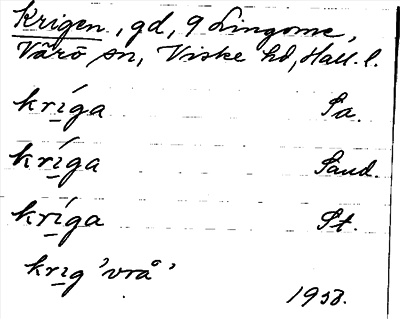 Krigen, gd, 9 Lingome,
Värö sn, Viske hd, Hall. l.
kríga Sa.
kríga Sand.
kríga St.
krig 'vrå'
1958.